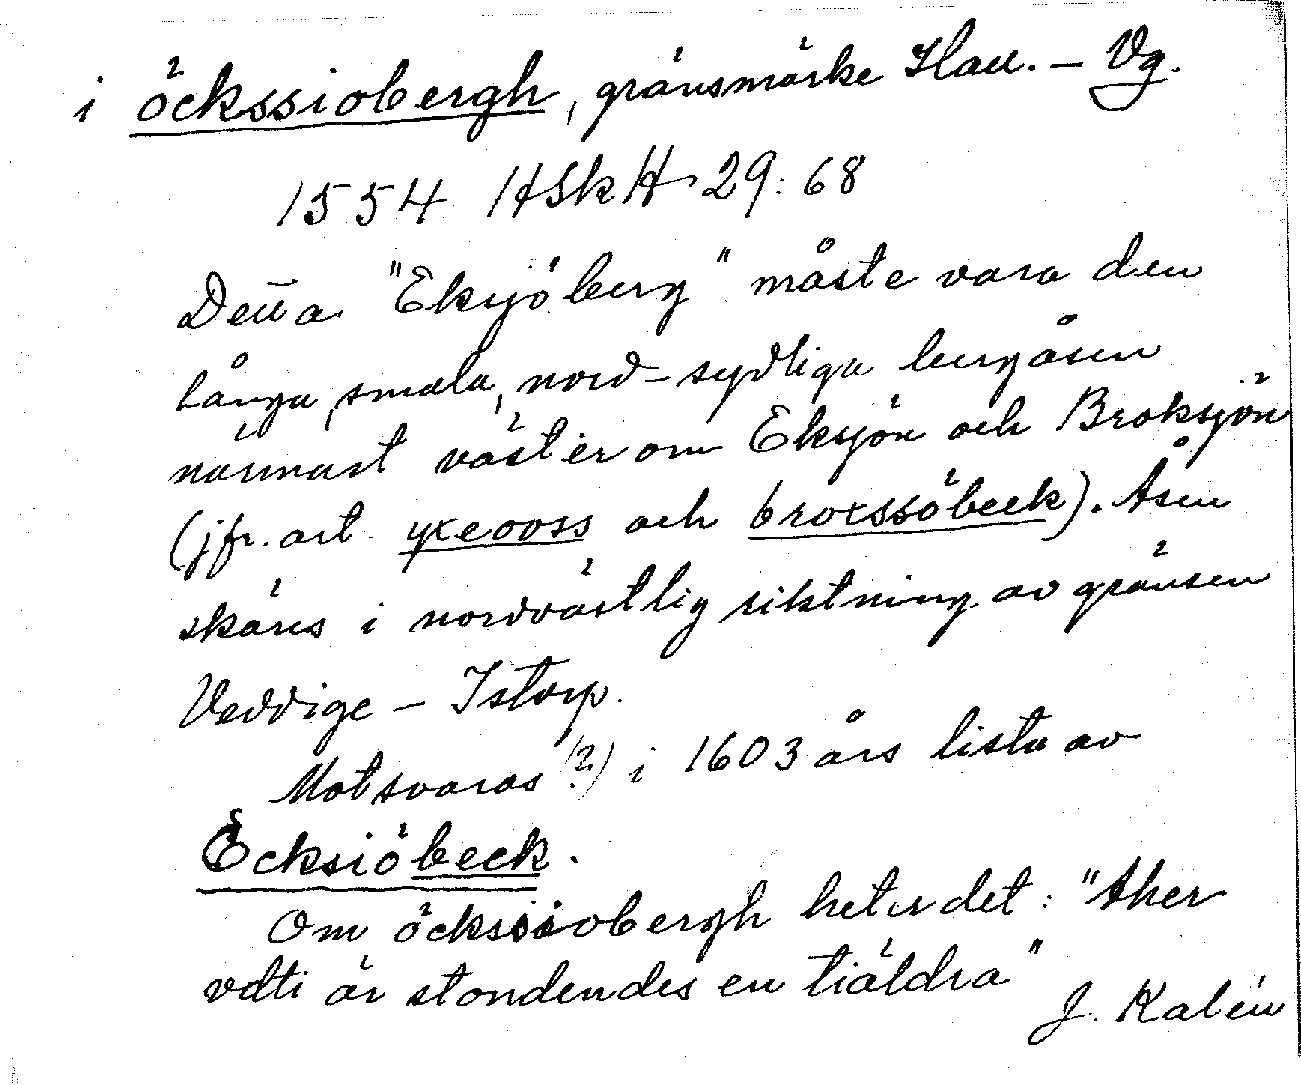 i öckssiobergh, gränsmärke Hall. – Vg.
1554 HSkH 29:68
Detta "Eksjöberg" måste vara den
långa, smala, nord-sydliga bergåsen
närmast väster om Eksjön och Broksjön
(jfr. art. yxeooss och broxssöbeck). Åsen
skäres i nordvästlig riktning av gränsen
Veddige – Istorp.
Motsvaras (?) i 1603 års lista av
Ecksiöbeck.
Om öckssiobergh heter det: "ther
vdti är stondendes en tiäldra"
J. Kalén